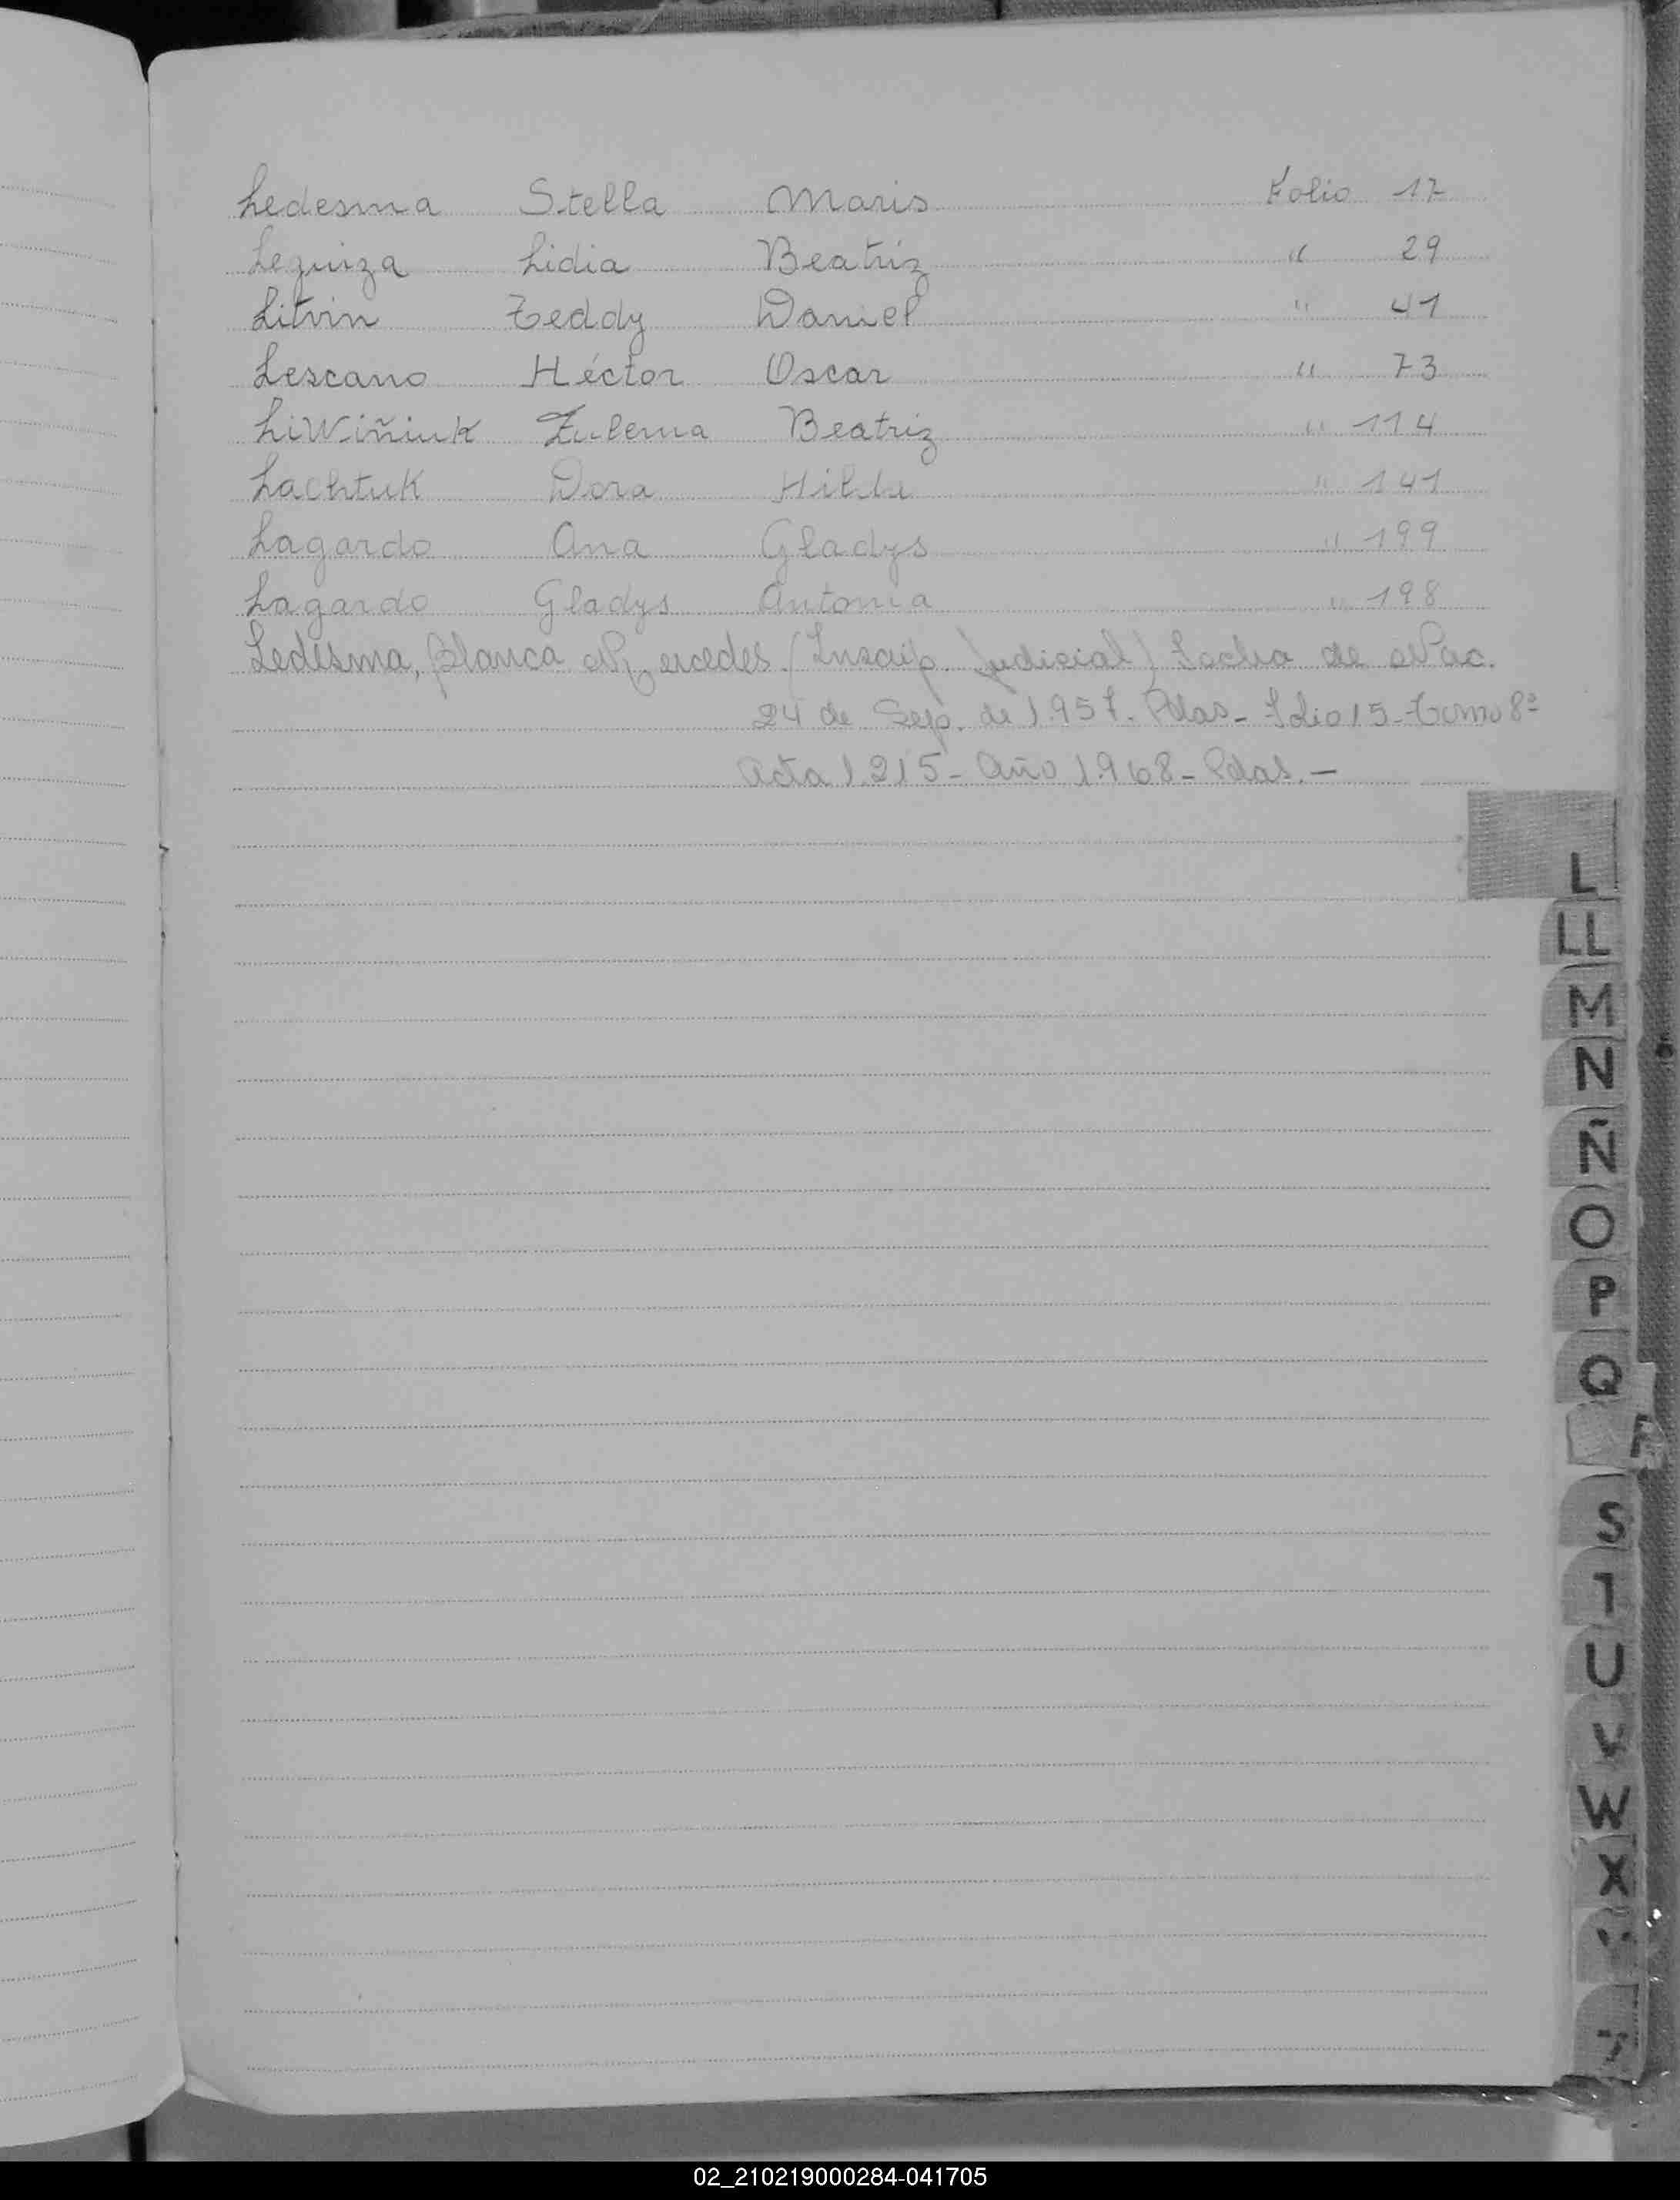 Ledesma Stella Maris Folio 17
Leguiza Lidia Beatriz " 29
Litvin Teddy Daniel " 41
Lescano Héctor Oscar " 73
LiWiñiuk Zulema Beatriz " 114
Lachtuk Dora Hilda " 141
Lagardo Ana Gladys " 199
Lagardo Gladys Antonia " 198
Ledesma, Blanca Mercedes (Inscrip. Judicial) Fecha de Nac.
24 de Sep. de 1.957. Pdas - Folio 15 - Tomo 8º
Acta 1.215 - Año 1.968 - Pdas. -
L
LL
M
N
Ñ
O
P
Q
R
S
T
U
V
W
X
02_210219000284-041705